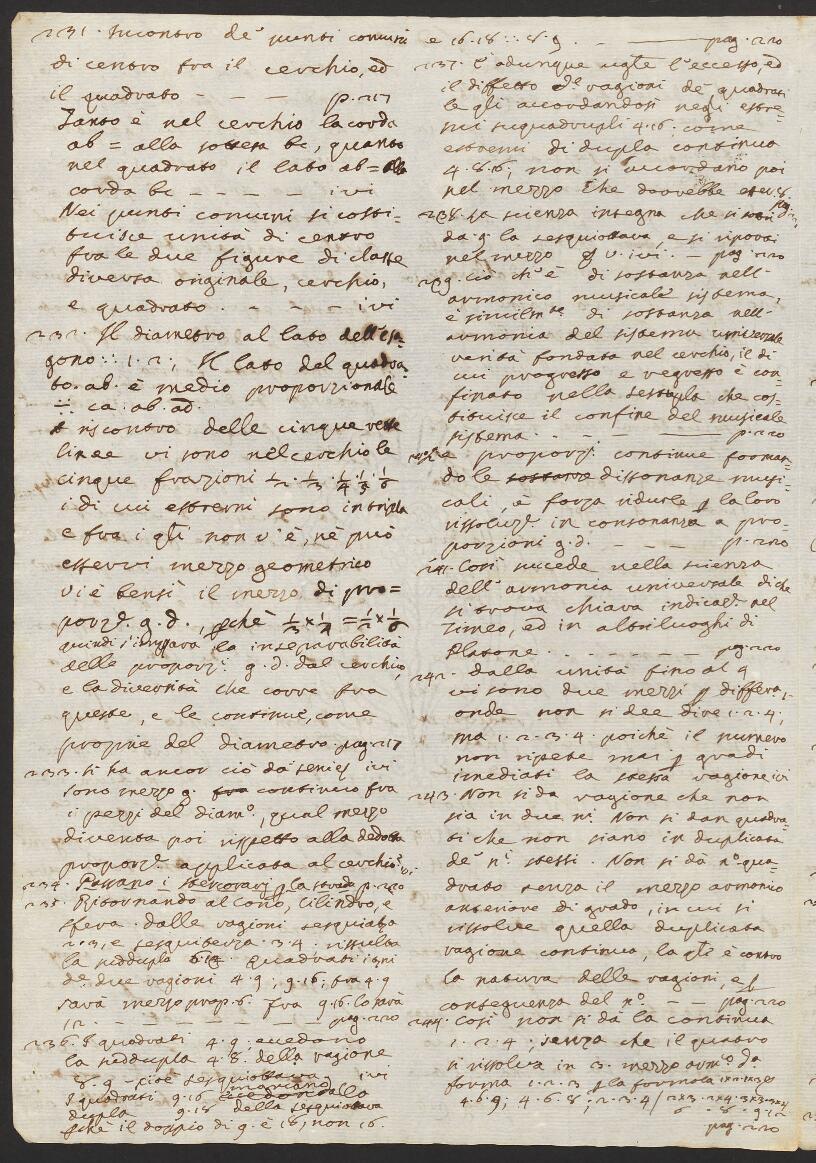 231. Incontro de' punti comuni
di centro fra il cerchio, ed
il quadrato - - - p. 217
Tanto è nel cerchio la corda
ab = alla sottesa bc, quanto
nel quadrato il lato ab = alla
corda bc - - - - ivi
Nei punti comuni si costi=
tuisce unità di centro
fra le due figure di classe
diversa originale, cerchio,
e quadrato. - - - ivi
232. Il diametro al lato dell'esa=
gono :: 1.2; Il lato del quadra
to. ab. è medio proporzionale
∺ ca. ab. ad.
riscontro delle cinque rette
linee vi sono nel cerchio le
cinque frazioni 1/2. 1/3. 1/4. 1/5. 1/6
i di cui estremi sono in tripla
e fra i qli non v'è, nè può
esservi mezzo geometrico
vi è bensì il mezzo di pro=
porze. g. d., pchè
quindi s'impara la inseparabilità
delle proporzi. g. d. dal cerchio,
e la diversità che corre fra
queste, e le continue, come
proprie del diametro pag. 217
233. si ha ancor ciò da series ivi
sono mezzo g. continuo fra
i pezzi del diamo., qual mezzo
diventa poi rispetto alla dedotta
proporze. applicata al cerchio ivi
234. Passano i la strada p. 220
235. Ritornando al Cono, Cilindro, e
sfera. dalle ragioni sesquialtera
2.3, e sesquiterza. 3.4. risulta
la suddupla 6.12. quadrati i ni
de. due ragioni 4.9; 9.16; fra 4.9
sarà mezzo prop. 6. fra 9.16. lo sarà
12. - - - - - - - pag. 220
236. I quadrati 4.9. eccedono
la suddupla 4.8. della ragione
8.9 - cioè sesquiottava ivi
I quadrati 9.16 mancano dalla
dupla 9.18 della sesquiottava
pchè il doppio di 9. è 18, non 16.
e 16.18 :: 8.9. - ——— pag. 220
237. È adunque ugle l'eccesso, ed
il diffetto de ragioni de' quadrati
le qli accordandosi negli estre=
mi suquadrupli 4.16. come
estremi di dupla continua
4.8.16, non si accordano poi
nel mezzo che dovrebbe esser 8.
pag. ivi
238. La scienza insegna che si
da. g. la sesquiottava, e si riposi
nel mezzo g v. ivi. - pag. 220
239. Ciò ch'è di sostanza nell'
armonico musicale sistema,
è similmte di sostanza nell'
armonia del sistema universale
verità fondata nel cerchio, il di
cui progresso e regresso è con=
finato nella sestupla che cos=
tituisce il confine del musicale
sistema - - - ——— p. 220
240. Le proporzi. continue forman=
do le dissonanze musi=
cali, è forza ridurle p la loro
rissoluze. in consonanza a pro=
porzioni g. d. - - - p. 220
241. Così succede nella scienza
dell'armonia universale di che
si trova chiara indicaze. nel
Timeo, ed in altri luoghi di
Platone - - - - - - - pag. 220
242. Dalla unità fino al 4
vi sono due mezzi p differa,
onde non si dee dire 1.2.4;
ma 1.2.3.4. poichè il numero
non ripete mai p gradi
imediati la stessa ragione ivi
243. Non si da ragione che non
sia in due ni. Non si dan quadra=
ti che non siano in duplicata
de' ni. stessi. Non si dà no. qua=
drato senza il mezzo armonico
anteriore di grado, in cui si
rissolve quella duplicata
ragione continua, la qle è contro
la natura delle ragioni, e p
conseguenza del no. - - pag. 220
244. Così non si dà la continua
1.2.4; senza che il quattro
si rissolva in 3. mezzo armo. da
forma 1.2.3 p la formola
4.6.9; 4.6.8; 2.3.4
pag. 220